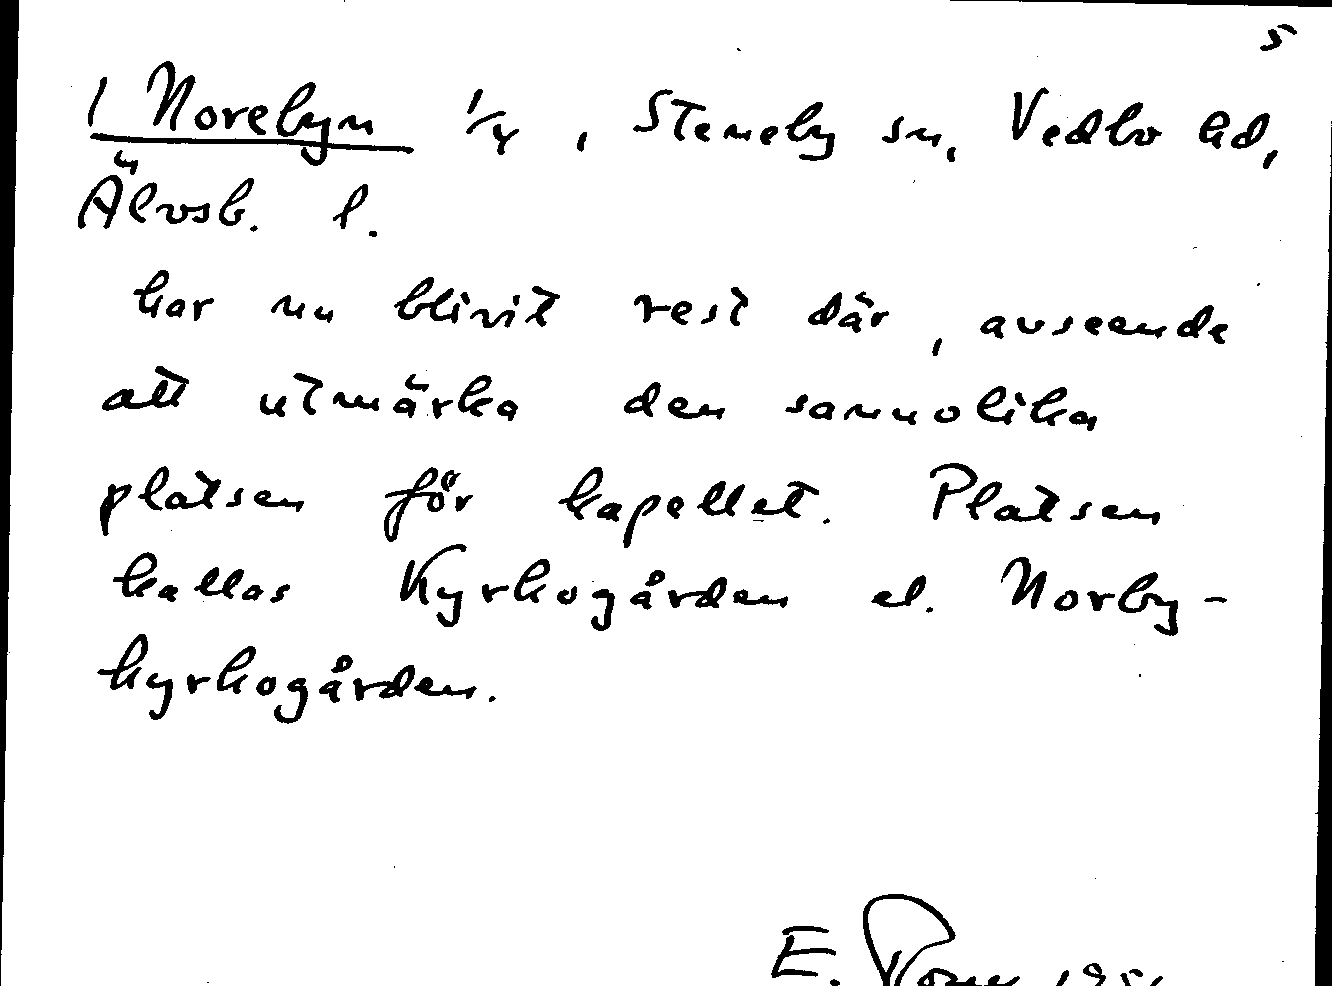 5
1 Norebyn 1/4, Steneby sn, Vedbo hd,
Älvsb. l.
har nu blivit rest där, avseende
att utmärka den sannolika
platsen för kapellet. Platsen
kallas Kyrkogården el. Norby-
kyrkogården.
E.